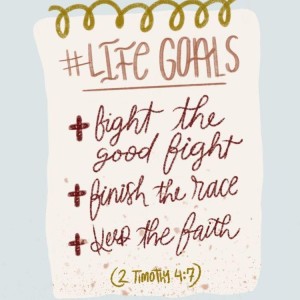 #LIFE GOALS
+ fight the
good fight
+ finish the race
+ keep the faith
(2 TIMOTHY 4:7)